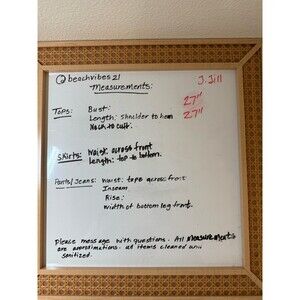 @beachvibes21
Measurements:
J.Jill
Tops: Bust: 27"
Length: Shoulder to hem 27"
Neck to cuff:
Skirts: Waist across front
Length: top to bottom.
Pants/Jeans: Waist: top across front
Inseam
Rise:
width of bottom leg front.
Please message with questions. All measurements
are approximations. All items cleaned and
sanitized.